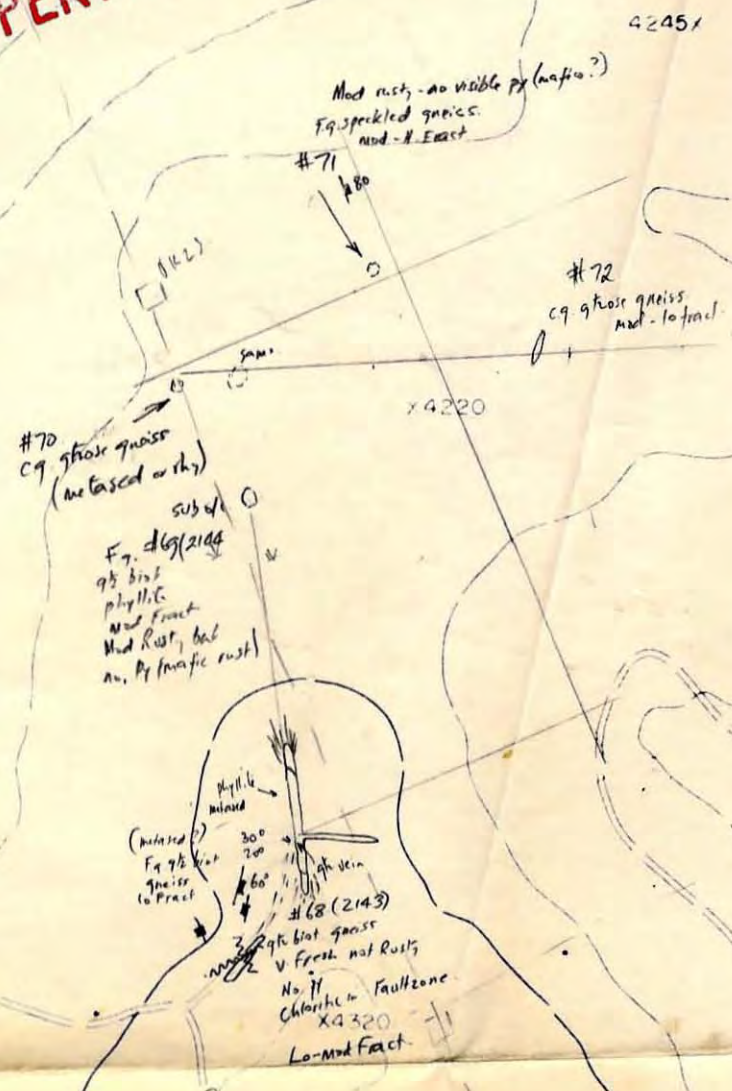 PER
4245x
Mod rusty - no visible py (mafics?)
F.g. speckled gneiss.
mod - H. Fract
#71
80
DK25
#72
cg. qtzose gneiss
mod - lo fract.
same
x4220
#70
cg. qtzose gneiss
(metased or rhy)
sub o/c
F.g. #69 (2144
qtz biot
phyllite
mod Fract
Mod Rust, but
no, Py (mafic rust)
phyllite
metased
(metased?)
F.g. qtz biot
gneiss
lo Fract
30°
20°
60°
qtz vein
#68 (2143)
qtz biot gneiss
v. Fresh not Rusty
No py
Chlorite in Faultzone
X4320
Lo-Mod Fract